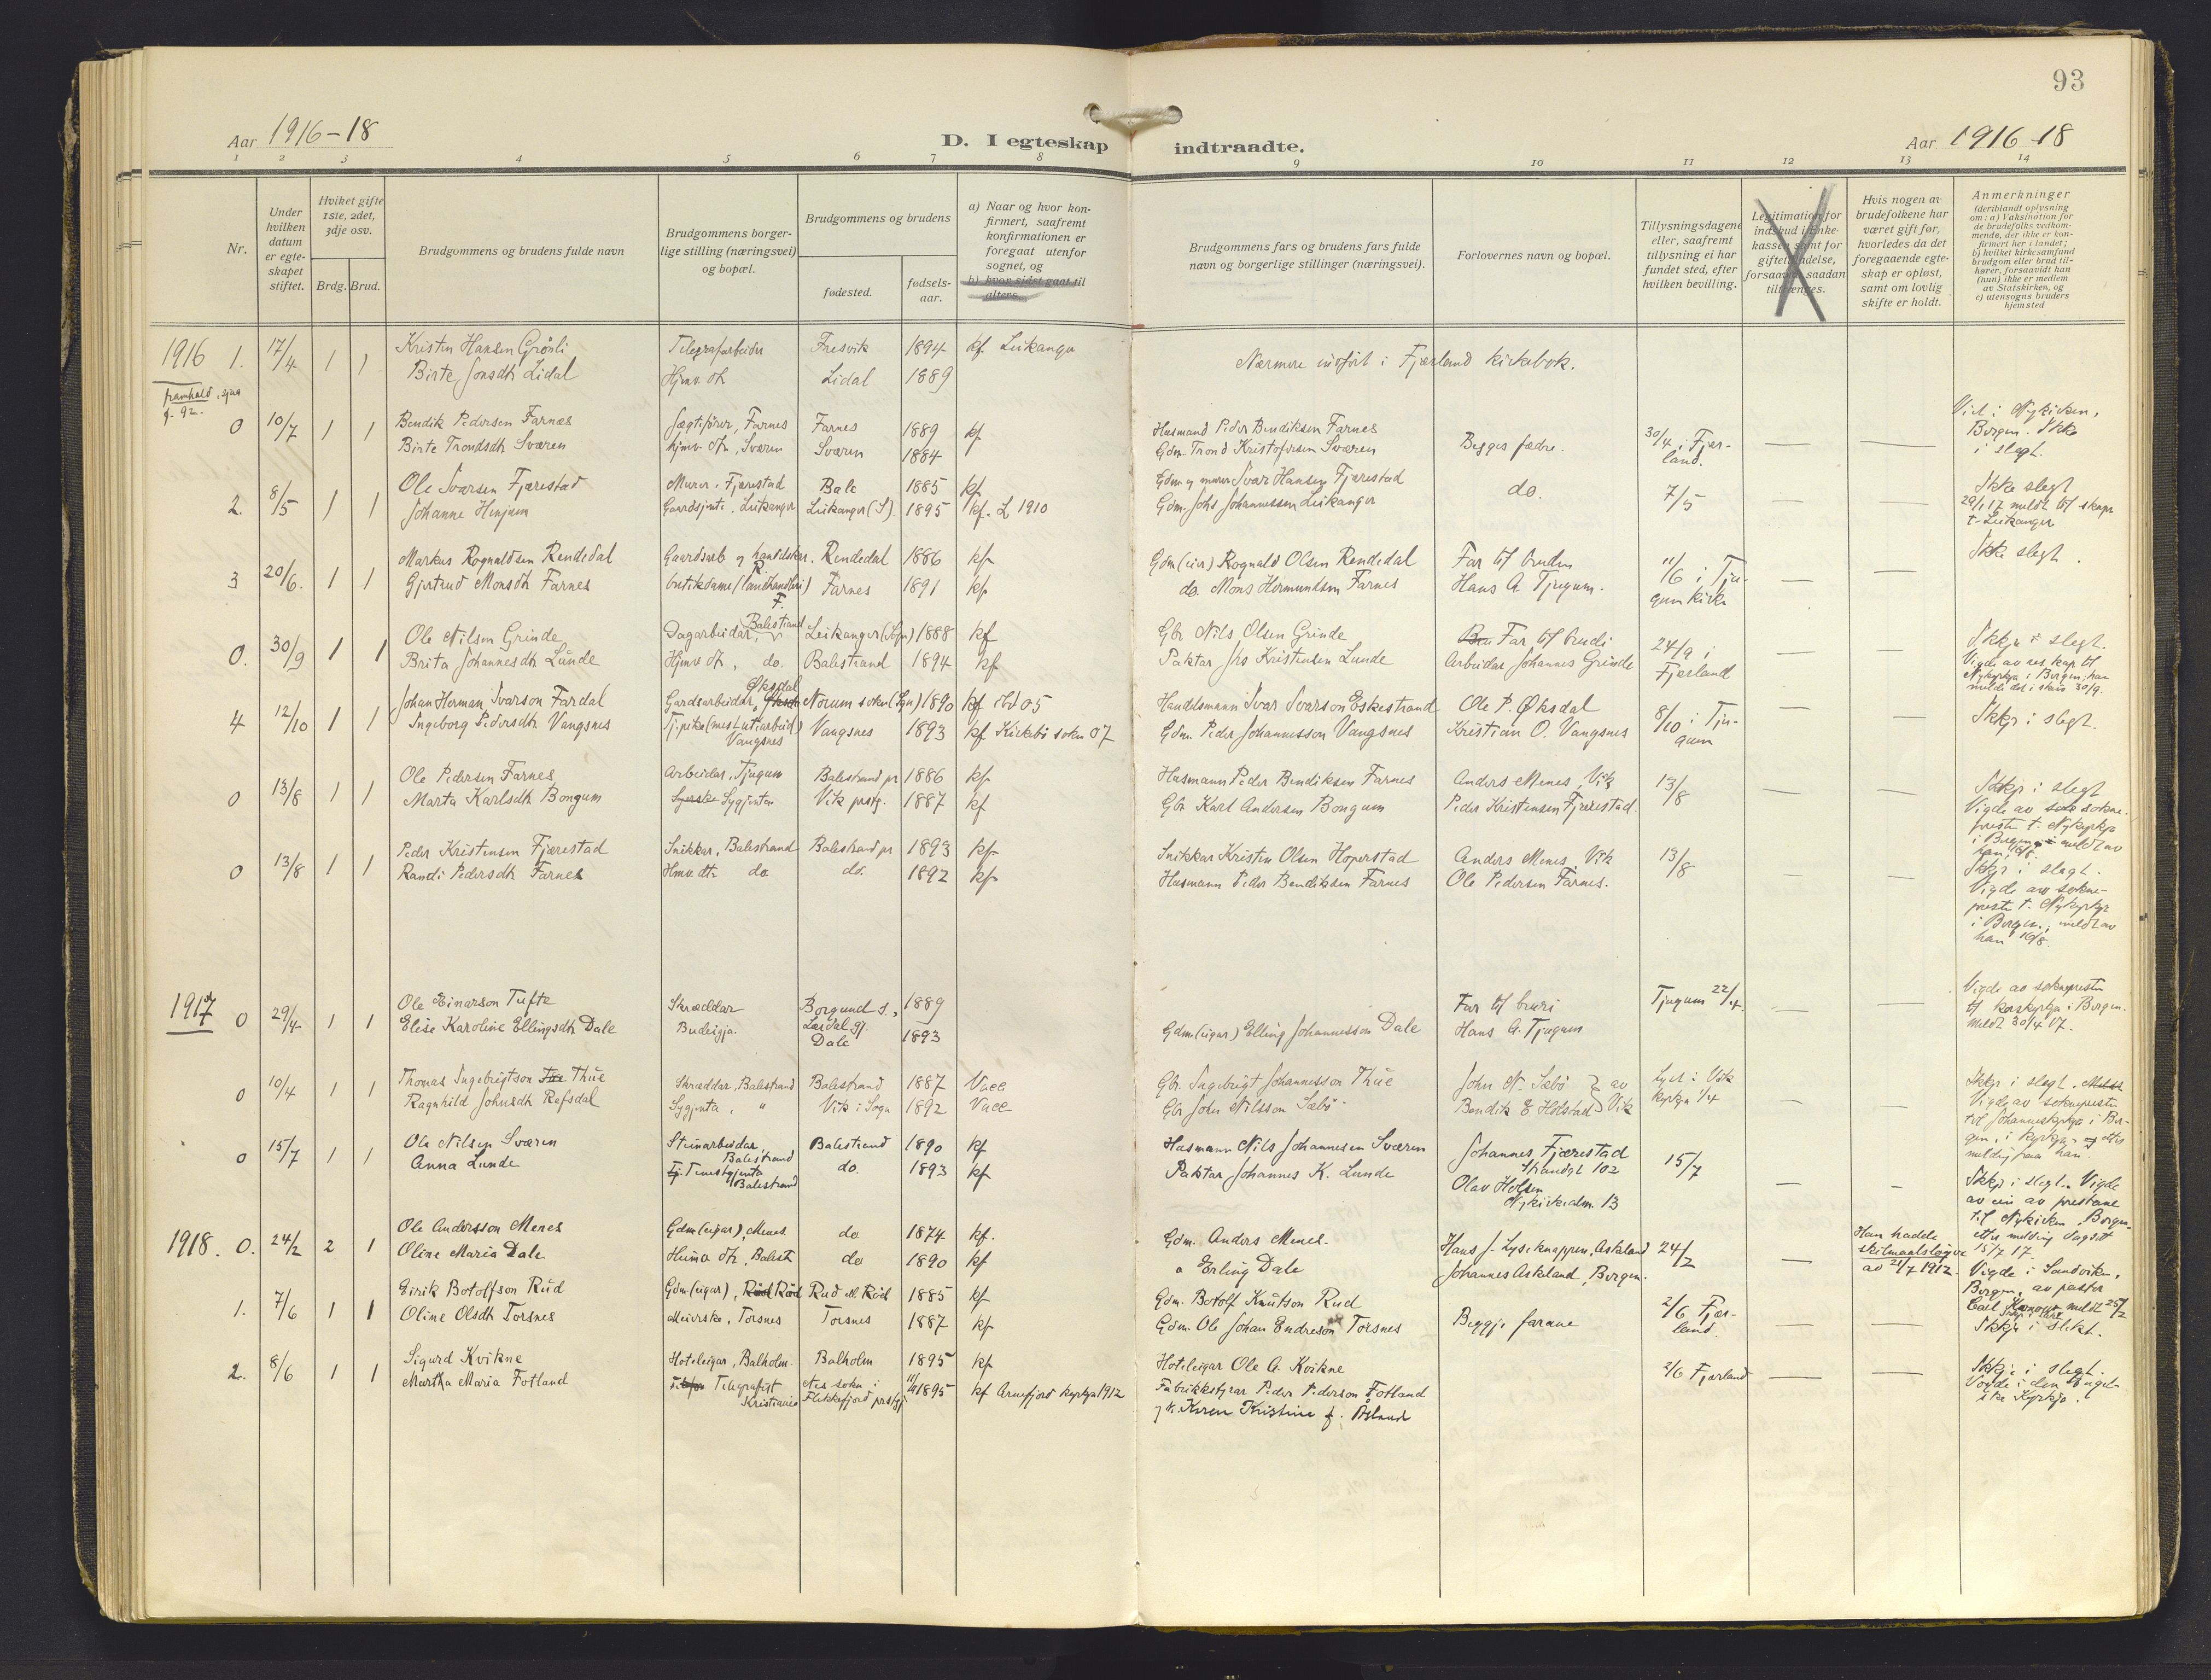 93
Aar 1916-18
D. I egteskap indtraadte.
Aar 1916-18
1 2 3 4 5 6 7 8 9 10 11 12 13 14
Nr.
Under hvilken datum er egteskapet stiftet.
Hviket gifte 1ste, 2det, 3dje osv.
Brdg. Brud.
Brudgommens og brudens fulde navn
Brudgommens borgerlige stilling (næringsvei) og bopæl.
Brudgommens og brudens
fødested.
fødselsaar.
a) Naar og hvor konfirmert, saafremt konfirmationen er foregaat utenfor sognet, og
b) hvor sidst gaat til alters.
Brudgommens fars og brudens fars fulde navn og borgerlige stillinger (næringsvei).
Forlovernes navn og bopæl.
Tillysningsdagene eller, saafremt tillysning ei har fundet sted, efter hvilken bevilling.
Legitimation for indskud i Enkekassen samt for giftetilladelse, forsaavidt saadan tiltrænges.
Hvis nogen av brudefolkene har været gift før, hvorledes da det foregaaende egteskap er opløst, samt om lovlig skifte er holdt.
Anmerkninger (deriblandt oplysning om: a) Vaksination for de brudefolks vedkommende, der ikke er konfirmert her i landet; b) hvilket kirkesamfund brudgom eller brud tilhører, forsaavidt han (hun) ikke er medlem av Statskirken, og c) utensogns bruders hjemsted
1916 1. 17/4 1 1 Kristen Hansen Grønli Telegrafarbeider Fresvik 1894 kf. Leikanger Nærmere indført i Fjærland kirkebok.
Birte Jonsdtr Lidal Hjmv. dtr Lidal 1889
framhald, sjaa
s. 92.
0 10/7 1 1 Bendik Pedersen Farnes Jægtefører, Farnes Farnes 1889 kf Husmand Peder Bendiksen Farnes Begges fædre. 30/4 i Fjærland. — — Viet i Nykirken, Bergen. Ikke i slegt.
Birte Trondsdtr Sværen hjmv. dtr, Sværen Sværen 1884 Gdm. Trond Kristofersen Sværen
2. 8/5 1 1 Ole Ivarsen Fjærestad Murer, Fjærestad Bale 1885 kf Gdm og murer Ivar Hansen Fjærestad do. 7/5 — Ikke slegt
Johanne Henjum Gaardsjente, Leikanger Leikanger (S). 1895 kf. L 1910 Gdm. Johs Johannessen Leikanger 29/1 17 meldt til skapr t. Leikanger
3 20/6. 1 1 Markus Rognaldsen Rendedal Gaardsarb. og handelskar. R. Rendedal 1886 kf Gdm (eier) Rognald Olsen Rendedal Far til bruden 11/6 i Tjugum kirke — — Ikke slegt.
Gjertrud Monsdtr Farnes butikdame (landhandleri) F. Farnes 1891 kf do. Mons Hermundsen Farnes Hans A. Tjugum.
0. 30/9 1 1 Ole Nilsen Grinde Dagarbeidar, Balestrand Leikanger (Sogn) 1888 kf Gbr Nils Olsen Grinde Far til brudi 24/9 i Fjærland — — Ikkje i slegt.
Brita Johannesdtr Lunde Hjmv. dtr, do. Balestrand 1894 kf Paktar Jhs Kristensen Lunde Arbeidar Johannes Grinde Vigde av res. kap. til Nykyrkja i Bergen, han melde det i skriv 30/9.
4 12/10 1 1 Johan Herman Ivarson Fardal Gardsarbeidar, Øksdal Norum sokn (Sogn) 1890 kf. Handelsmann Ivar Ivarson Eskestrand Ole P. Øksdal 8/10 i Tjugum — — Ikkje i slegt.
Ingeborg Pedersdtr Vangsnes Tj.pike (mest utearbeid) Vangsnes Vangsnes 1893 kf Kirkebø sokn 07 Gdm. Peder Johannesson Vangsnes Kristian O. Vangsnes
0 13/8 1 1 Ole Pedersen Farnes Arbeidar, Tjugum Balestrand pr 1886 kf Husmann Peder Bendiksen Farnes Anders Menes, Vik 13/8 — — Ikkje i slegt
Marta Karlsdtr Bongum Syerske Sygjenta Vik prstg. 1887 kf Gbr Karl Andersen Bongum Peder Kristensen Fjærestad. Vigde av sokneprestn t. Nykyrkja i Bergen, meldt av han 16/8.
0 13/8 1 1 Peder Kristensen Fjærestad Snikkar, Balestrand Balestrand pr 1893 kf Snikkar Kristen Olsen Hoperstad Anders Menes, Vik 13/8 — — Ikkje i slegt.
Randi Pedersdtr Farnes Hmv dtr do do. 1892 kf Husmann Peder Bendiksen Farnes Ole Pedersen Farnes. Vigde av sokneprestn t. Nykyrkja i Bergen, meldt av han 16/8.
1917 0 29/4 1 1 Ole Einarson Tufte Skræddar Borgund s., Lærdal gj. 1889 Far til brudi Tjugum 22/4 — — Vigde av soknepresten til korskyrkja i Bergen. Meldt 30/4 17.
Elise Karoline Ellingsdtr Dale Budeigja. Dale 1893 Gdm (eigar) Elling Johannesson Dale Hans A. Tjugum
0 10/4 1 1 Thomas Ingebrigtson Thue Skræddar, Balestrand Balestrand 1887 Vacc Gbr. Ingebrigt Johannesson Thue John N. Sæbø } av Vik Lyst i Vik kyrkja 1/4 — — Ikkje i slegt.
Ragnhild Johnsdtr Refsdal Sygjenta, " Vik i Sogn 1892 Vacc Gbr John Nilsson Sæbø Bendik E Holstad Vigde av soknepresten til Johanneskyrkja i Bergen, i kyrkja, etter melding fraa han.
0 15/7 1 1 Ole Nilsen Sværen Steinarbeidar, Balestrand Balestrand 1890 kf Husmann Nils Johannesen Sværen Johannes Fjærestad Strandgt 102 15/7 — — Ikkje i slegt. Vigde av ein av prestane til Nykirken, Bergen etter melding dagsett 15/7 17.
Anna Lunde Tenestgjenta Balestrand do. 1893 kf Paktar Johannes K. Lunde Olav Holsen Nykirkealm. 13
1918. 0. 24/2 2 1 Ole Andersson Menes Gdm (eigar), Menes do 1874 kf. Gdm. Anders Menes Hans J. Lyseknappen, Askland 24/2 — Han hadde skilmaalsløyve av 21/7 1912. Vigde i Sandviken, Bergen, av pastor
Oline Maria Dale Heima dtr, Balest do 1890 kf " Erling Dale Johannes Askland, Bergen. meldt 25/2
1. 7/6 1 1 Eirik Botolfson Rud Gdm (eigar), Rud 1885 kf Gdm. Botolf Knutson Rud Beggje farane 2/6 Fjærland. — — Ikkje i slekt.
Oline Olsdtr Torsnes Meierske, Torsnes Torsnes 1887 kf Gdm. Ole Johan Endreson Torsnes
2. 8/6 1 1 Sigurd Kvikne Hoteleigar, Balholm Balholm 1895 kf Hoteleigar Ole A. Kvikne 2/6 Fjærland — — Ikkje i slegt.
Martha Maria Fotland Telegrafist Kristiania Nes sokn i Flekkefjord prstgj. 1895 kf Arnefjord kyrkja 1912 Fabrikkstyrar Peder Pederson Fotland Vigde i den Engelske Kyrkja.
Karen Kristine f. Åsland